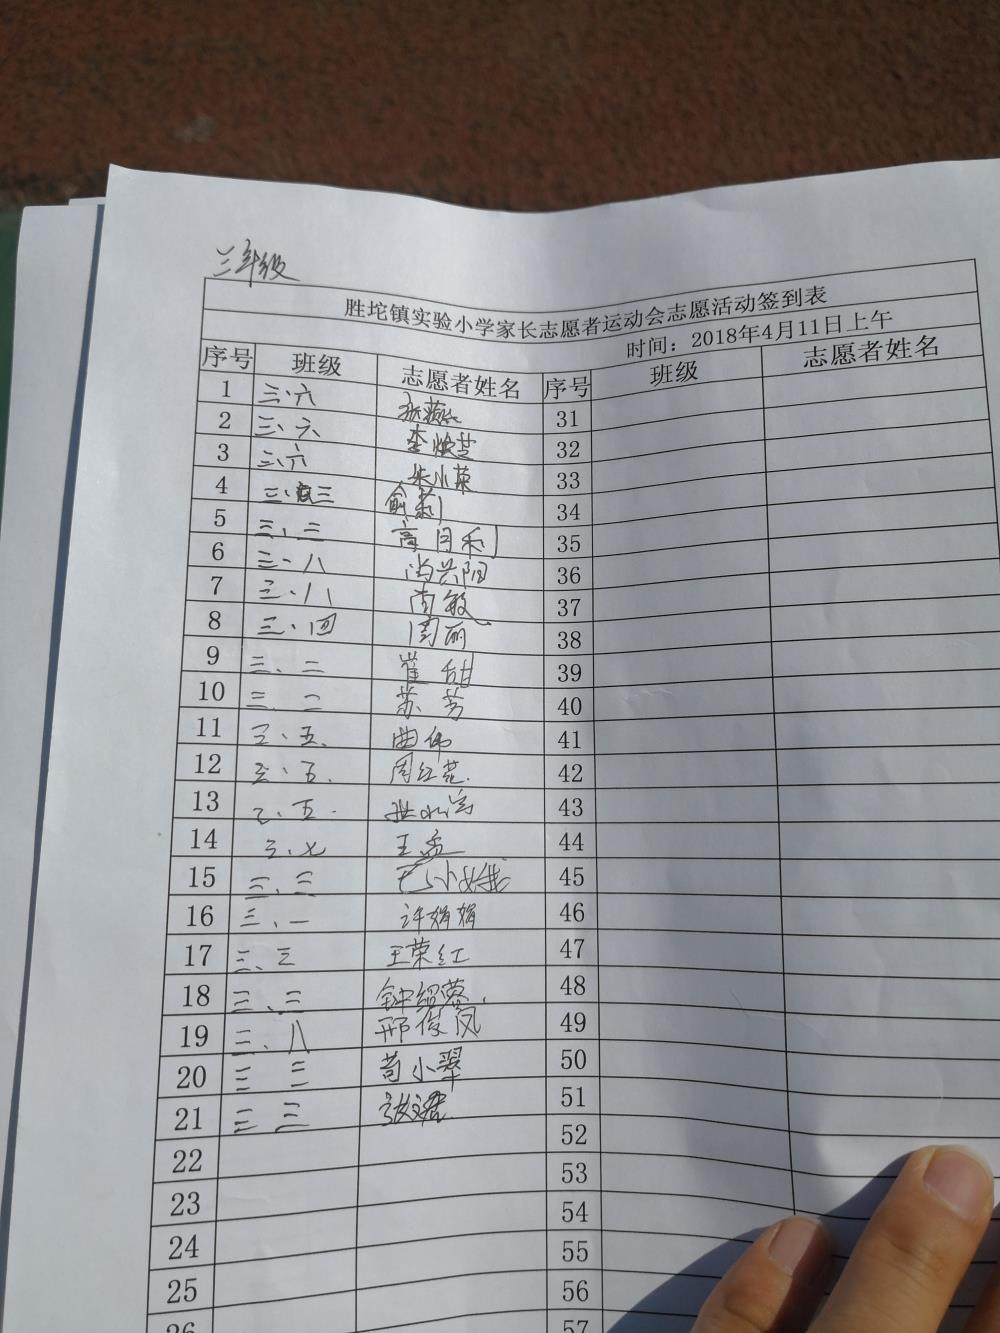 三年级
胜坨镇实验小学家长志愿者运动会志愿活动签到表
时间：2018年4月11日上午
序号 班级 志愿者姓名 序号 班级 志愿者姓名
1 三.六 31
2 三.六 李焕芝 32
3 三.六 朱小荣 33
4 三.三 俞莉 34
5 三.三 高月利 35
6 三.八 尚兴阳 36
7 三.八 南敏 37
8 三.四 周丽 38
9 三.二 崔甜 39
10 三 二 苏芳 40
11 三.五. 曲伟 41
12 三.五. 周红花. 42
13 三.五. 43
14 三.七 王孟 44
15 三.三 毛小娥 45
16 三.一 许娟娟 46
17 三.三 王荣红 47
18 三.三 钟绍蓉. 48
19 三.八 邢俊凤 49
20 三 三 苟小翠 50
21 三 三 51
22 52
23 53
24 54
25 55
26 56
57